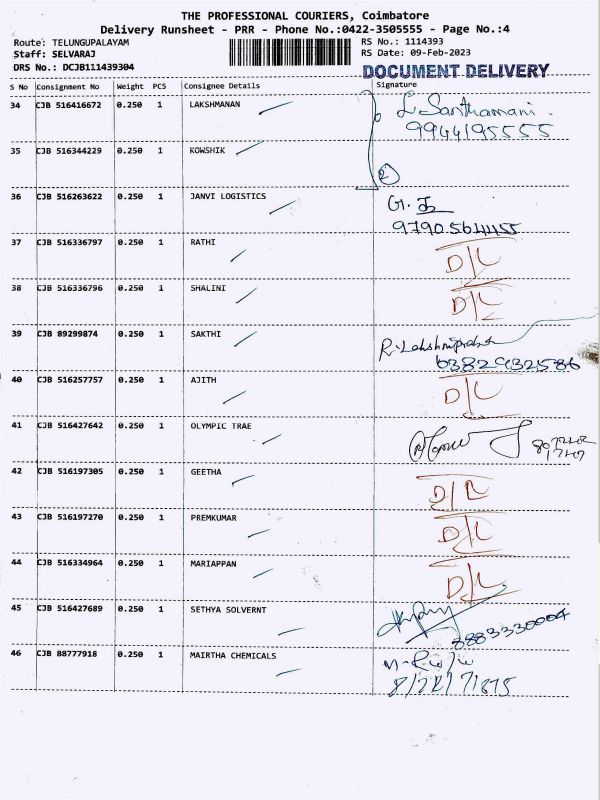 THE PROFESSIONAL COURIERS, Coimbatore
Delivery Runsheet - PRR - Phone No.:0422-3505555 - Page No.:4
Route: TELUNGUPALAYAM RS No.: 1114393
Staff: SELVARAJ RS Date: 09-Feb-2023
DRS No.: DCJB111439304 DOCUMENT DELIVERY
S No Consignment No Weight PCS Consignee Details Signature
34 CJB 516416672 0.250 1 LAKSHMANAN L. Santhamani.
9944195555
35 CJB 516344229 0.250 1 KOWSHIK
2
36 CJB 516263622 0.250 1 JANVI LOGISTICS
37 CJB 516336797 0.250 1 RATHI D/L
38 CJB 516336796 0.250 1 SHALINI D/L
39 CJB 89299874 0.250 1 SAKTHI
40 CJB 516257757 0.250 1 AJITH D/L
41 CJB 516427642 0.250 1 OLYMPIC TRAE
42 CJB 516197305 0.250 1 GEETHA D/L
43 CJB 516197270 0.250 1 PREMKUMAR D/L
44 CJB 516334964 0.250 1 MARIAPPAN D/L
45 CJB 516427689 0.250 1 SETHYA SOLVERNT
8883330004
46 CJB 88777918 0.250 1 MAIRTHA CHEMICALS